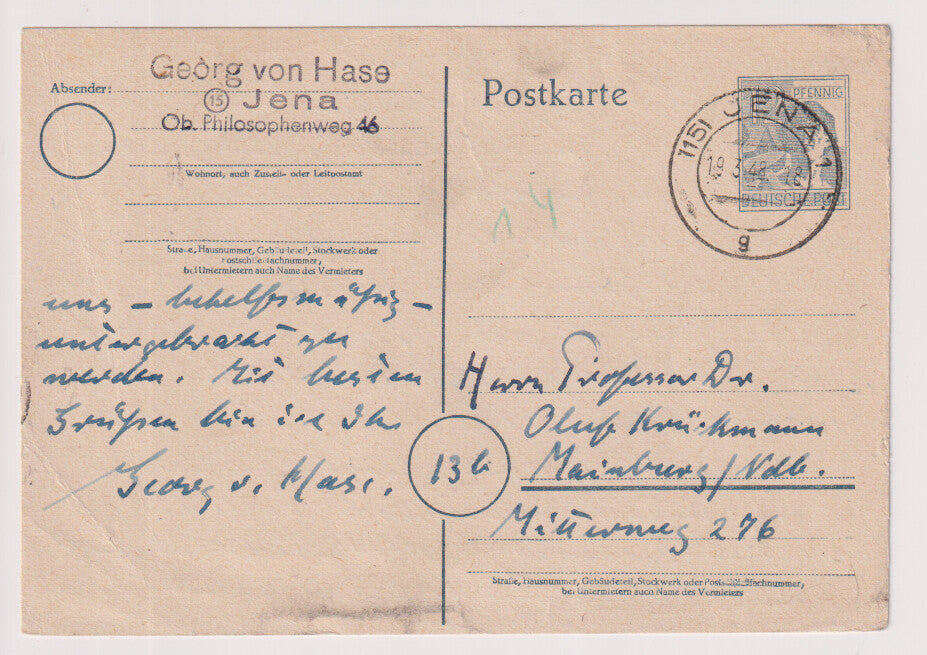 Absender:
Georg von Hase
(15) Jena
Ob. Philosophenweg 46
Wohnort, auch Zustell- oder Leitpostamt
Straße, Hausnummer, Gebäudeteil, Stockwerk oder
Postschließfachnummer,
bei Untermietern auch Name des Vermieters
uns – behelfsmäßig –
untergebracht zu
werden. Mit besten
Grüßen bin ich Ihr
Georg v. Hase.
Postkarte
PFENNIG
DEUTSCHE POST
(15) JENA 1
18.3.48. 18
g
14
Herrn Professor Dr.
Oluf Krückmann
13b
Mainburg/Ndb.
Mitterweg 276
Straße, Hausnummer, Gebäudeteil, Stockwerk oder Postschließfachnummer,
bei Untermietern auch Name des Vermieters